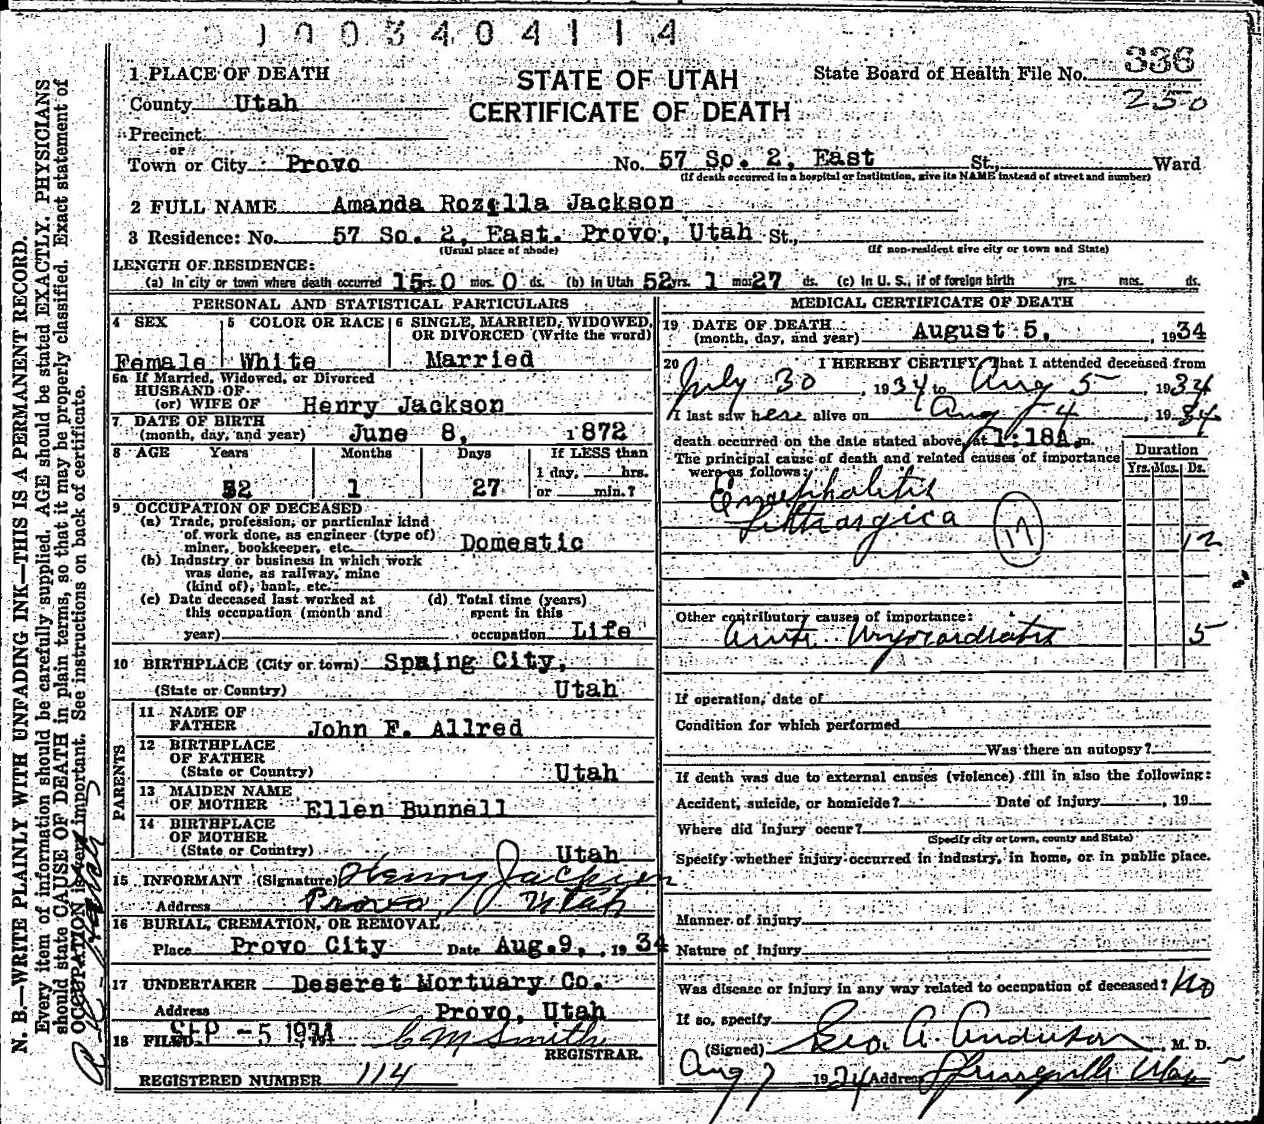 0003404114
STATE OF UTAH
CERTIFICATE OF DEATH
State Board of Health File No. 336
250
1 PLACE OF DEATH
County Utah
Precinct
or
Town or City Provo No. 57 So. 2, East St., Ward
(If death occurred in a hospital or institution, give its NAME instead of street and number)
2 FULL NAME Amanda Rozella Jackson
3 Residence: No. 57 So. 2, East. Provo, Utah St.,
(Usual place of abode) (If non-resident give city or town and State)
LENGTH OF RESIDENCE:
(a) In city or town where death occurred 15 yrs. 0 mos. 0 ds. (b) In Utah 52 yrs. 1 mos. 27 ds. (c) In U. S., if of foreign birth yrs. mos. ds.
PERSONAL AND STATISTICAL PARTICULARS
4 SEX 5 COLOR OR RACE 6 SINGLE, MARRIED, WIDOWED,
OR DIVORCED (Write the word)
Female White Married
6a If Married, Widowed, or Divorced
HUSBAND OF
(or) WIFE OF Henry Jackson
7 DATE OF BIRTH
(month, day, and year) June 8, 1872
8 AGE Years Months Days If LESS than
1 day, hrs.
or min.?
52 1 27
9 OCCUPATION OF DECEASED
(a) Trade, profession, or particular kind
of work done, as engineer (type of)
miner, bookkeeper, etc. Domestic
(b) Industry or business in which work
was done, as railway, mine
(kind of), bank, etc.
(c) Date deceased last worked at
this occupation (month and
year)
(d) Total time (years)
spent in this
occupation Life
10 BIRTHPLACE (City or town) Spring City,
(State or Country) Utah
PARENTS
11 NAME OF
FATHER John F. Allred
12 BIRTHPLACE
OF FATHER
(State or Country) Utah
13 MAIDEN NAME
OF MOTHER Ellen Bunnell
14 BIRTHPLACE
OF MOTHER
(State or Country) Utah
15 INFORMANT (Signature) Henry Jackson
Address Provo, Utah
16 BURIAL, CREMATION, OR REMOVAL
Place Provo City Date Aug.9, 1934
17 UNDERTAKER Deseret Mortuary Co.
Address Provo, Utah
18 FILED SEP -5 1934 C M Smith
REGISTRAR.
REGISTERED NUMBER 114
MEDICAL CERTIFICATE OF DEATH
19 DATE OF DEATH
(month, day, and year) August 5, 1934
20 I HEREBY CERTIFY That I attended deceased from
July 30, 1934 to Aug 5 1934
I last saw her alive on Aug 4 1934
death occurred on the date stated above, at 1:18A.m.
The principal cause of death and related causes of importance
were as follows:
Duration
Yrs. Mos. Ds.
Encephalitis
Lethargica 17
12
Other contributory causes of importance:
Acute Myocarditis 5
If operation, date of
Condition for which performed
Was there an autopsy?
If death was due to external causes (violence) fill in also the following:
Accident, suicide, or homicide? Date of Injury , 19
Where did injury occur?
(Specify city or town, county and State)
Specify whether injury occurred in industry, in home, or in public place.
Manner of injury
Nature of Injury
Was disease or injury in any way related to occupation of deceased? No
If so, specify
(Signed) Geo. A. Anderson, M. D.
Aug 7 1934 Address Springville Utah
N. B.—WRITE PLAINLY WITH UNFADING INK—THIS IS A PERMANENT RECORD.
Every item of information should be carefully supplied. AGE should be stated EXACTLY. PHYSICIANS
should state CAUSE OF DEATH in plain terms, so that it may be properly classified. Exact statement of
OCCUPATION is very important. See instructions on back of certificate.